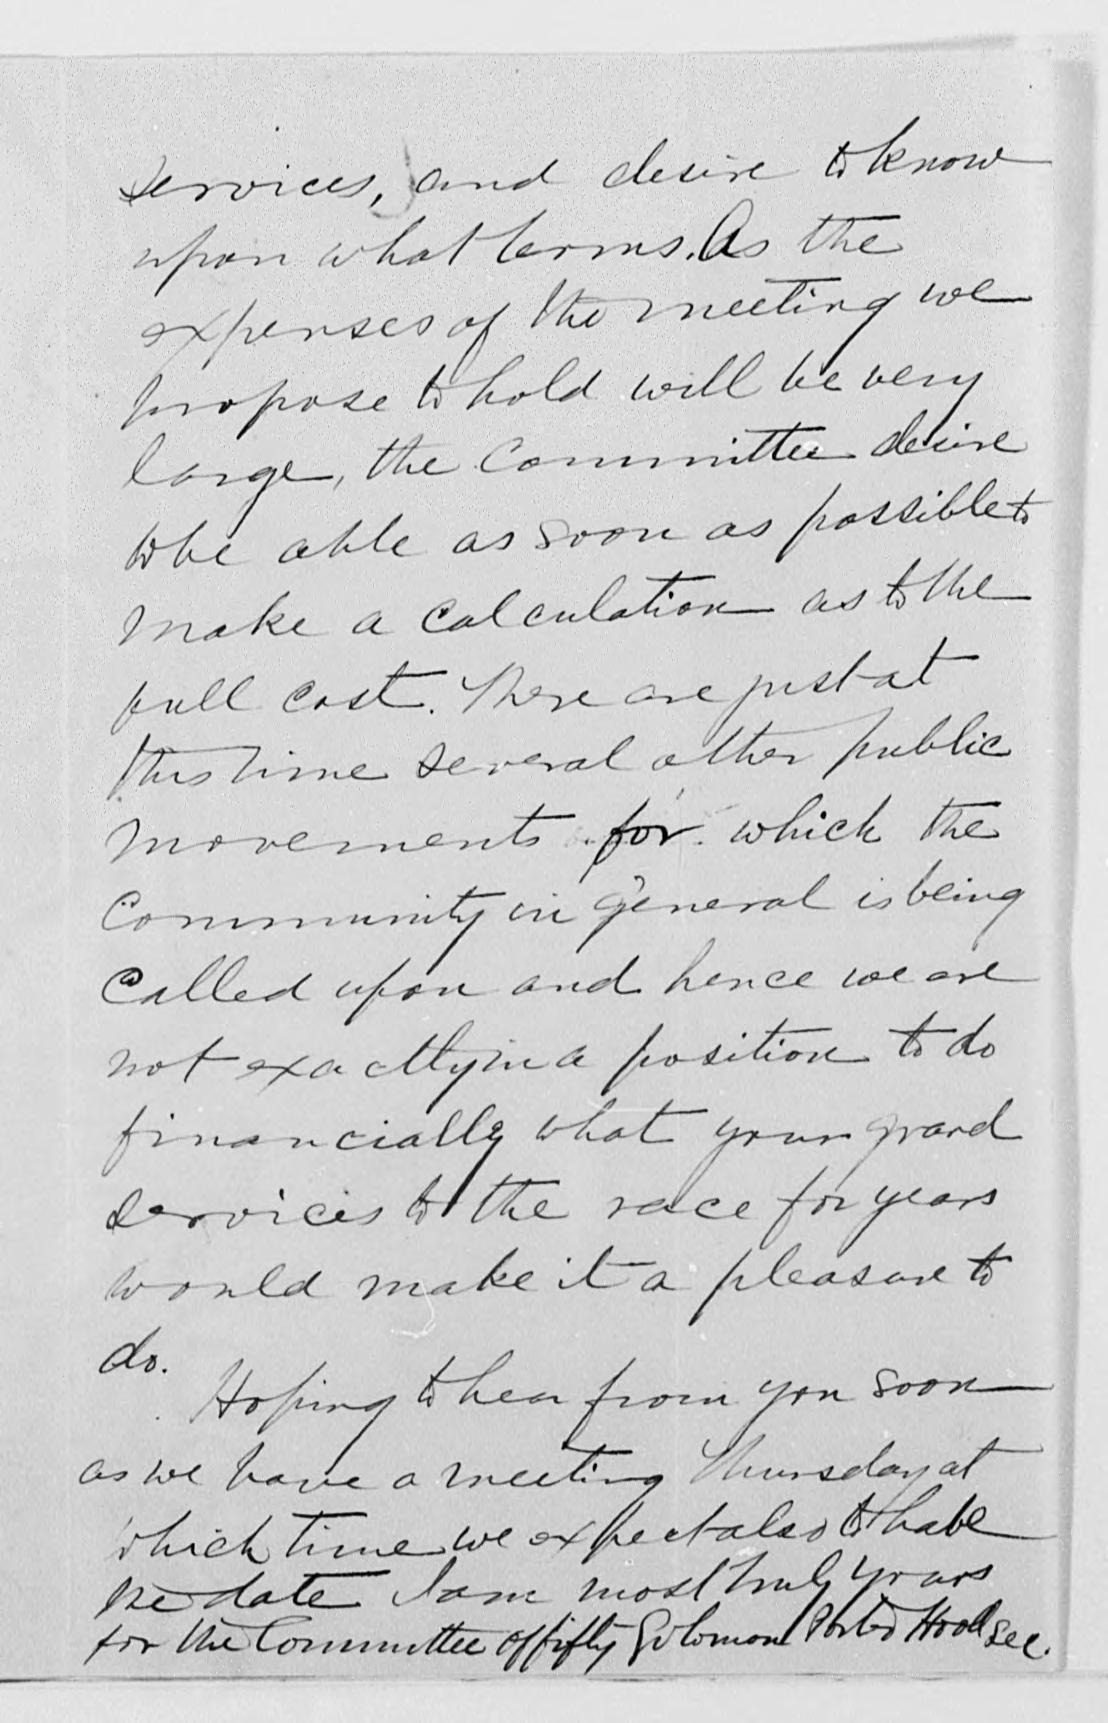 services, and desire to know
upon what terms. As the
expenses of the meeting we
propose to hold will be very
large, the Committee desire
to be able as soon as possible to
make a calculation as to the
full cost. There are just at
this time several other public
movements for which the
Community in general is being
Called upon and hence we are
not exactly in a position to do
financially what your grand
services to the race for years
would make it a pleasure to
do.
Hoping to hear from you soon
as we have a meeting Thursday at
which time we expect also to have
the date I am most truly yours
for the Committee of fifty Solomon Porter Hood Sec.